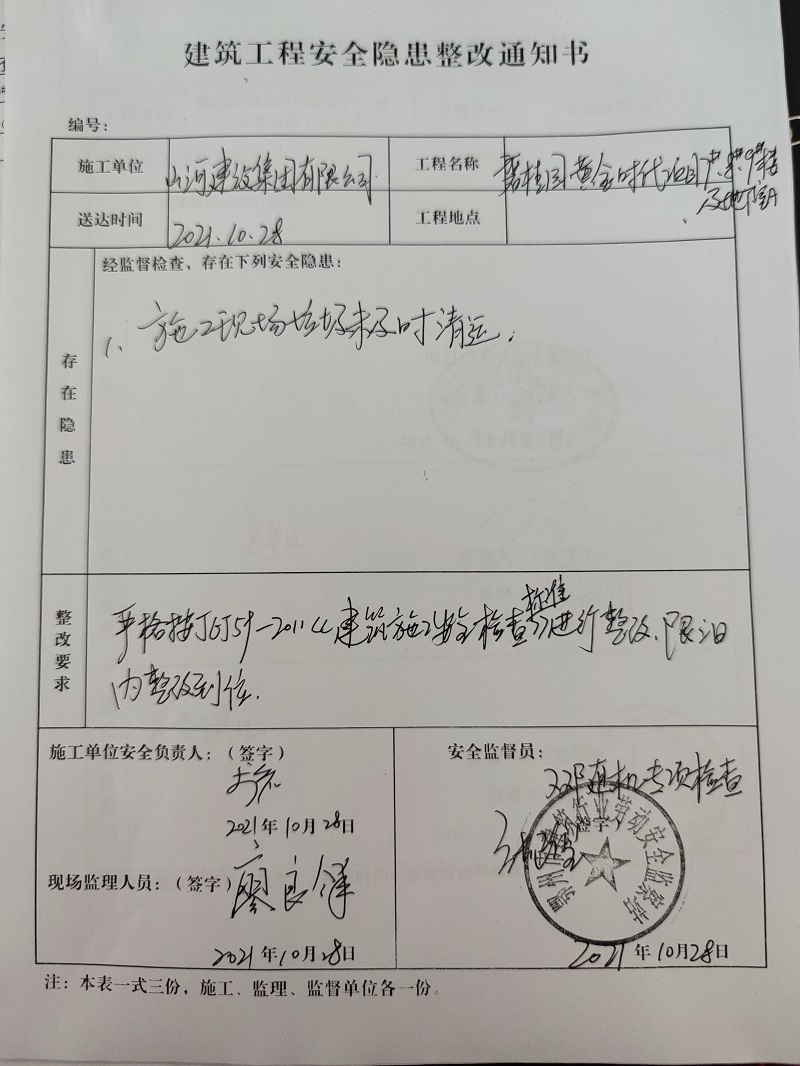 建筑工程安全隐患整改通知书
编号：
施工单位 山河建设集团有限公司 工程名称 碧桂园黄金时代项目7#、8#、9#楼
及地下室
送达时间 2021.10.28 工程地点
经监督检查、存在下列安全隐患：
1、施工现场垃圾未及时清运.
存在隐患
整改要求
严格按JGJ59-2011《建筑施工安全检查标准》进行整改、限三日
内整改到位.
施工单位安全负责人：（签字） 安全监督员：
双随机专项检查
签字
2021年10月28日
现场监理人员：（签字）廖良锋
建筑行业劳动安全监察站
2021年10月28日 2021年10月28日
注：本表一式三份，施工、监理、监督单位各一份。